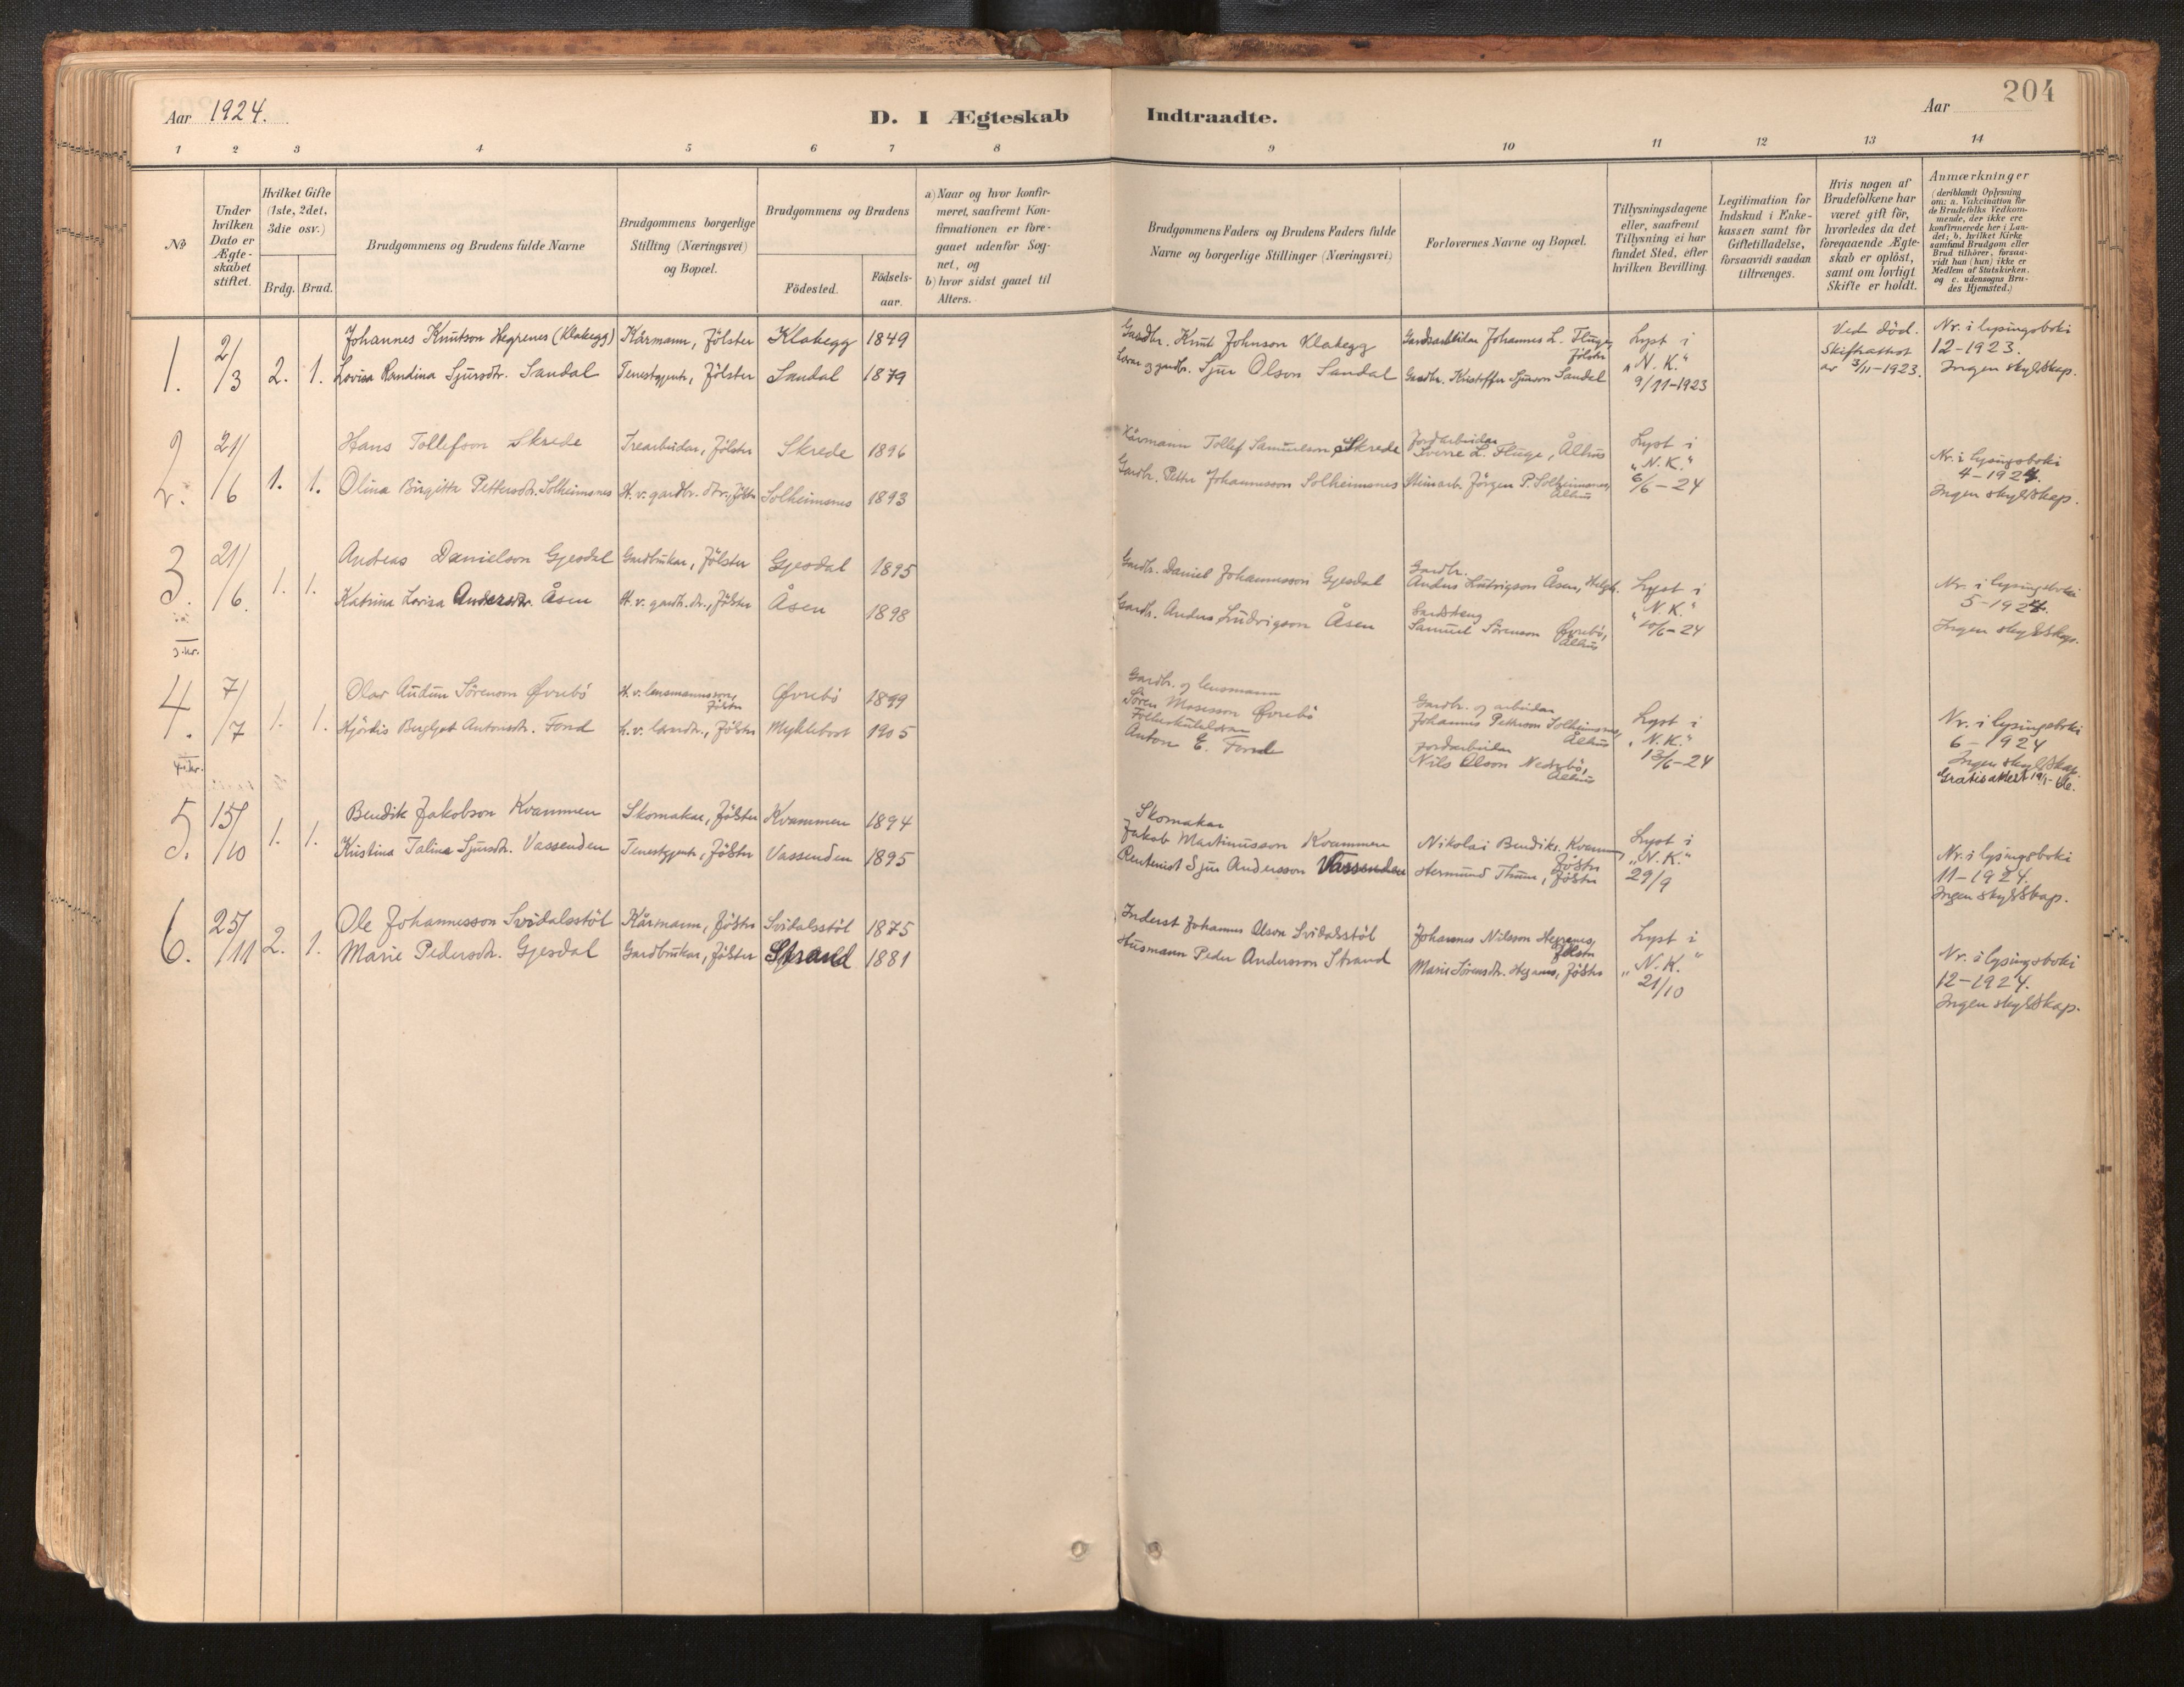 204
Aar 1924.
D. I Ægteskab Indtraadte.
Aar
1 2 3 4 5 6 7 8 9 10 11 12 13 14
No
Under
hvilken
Dato er
Ægte-
skabet
stiftet.
Hvilket Gifte
(1ste, 2det,
3die osv.)
Brdg. Brud.
Brudgommens og Brudens fulde Navne
Brudgommens borgerlige
Stilling (Næringsvei)
og Bopæl.
Brudgommens og Brudens
Födested.
Födsels-
aar.
a) Naar og hvor konfir-
meret, saafremt Kon-
firmationen er fore-
gaaet udenfor Sog-
net, og
b) hvor sidst gaaet til
Alters.
Brudgommens Faders og Brudens Faders fulde
Navne og borgerlige Stillinger (Næringsvei)
Forlovernes Navne og Bopæl.
Tillysningsdagene
eller, saafremt
Tillysning ei har
fundet Sted, efter
hvilken Bevilling.
Legitimation for
Indskud i Enke-
kassen samt for
Giftetilladelse,
forsaavidt saadan
tiltrænges.
Hvis nogen af
Brudefolkene har
været gift för,
hvorledes da det
foregaaende Ægte-
skab er oplöst,
samt om lovligt
Skifte er holdt.
Anmærkninger
(deriblandt Oplysning
om: a. Vakcination for
de Brudefolks Vedkom-
mende, der ikke ere
konfirmerede her i Lan-
det; b. hvilket Kirke
samfund Brudgom eller
Brud tilhörer, forsaa-
vidt han (hun) ikke er
Medlem af Statskirken.
og c. udensogns Bru-
des Hjemsted.)
1. 2/3 2. 1.
Johannes Knutson Hegrenes (Klakegg) Kårmann, Jölster Klakegg 1849
Lovisa Randina Sjursdtr. Sandal Tenestgjente, Jölster Sandal 1879
Gardbr. Knut Johnson Klakegg
gardbr. Sjur Olson Sandal
Gardsarbeidar Johannes L. Fluge,
Jölster
Gardbr. Kristoffer Sjurson Sandal
Lyst i
"N. K."
9/11-1923
Ved död.
Skifteattest
av 3/11-1923.
Nr. i lysingsboki
12-1923.
Ingen skyldskap.
2. 21/6 1. 1.
Hans Tollefson Skrede Trearbeidar, Jölster Skrede 1896
Olina Birgitte Pettersdtr. Solheimsnes H. v. gardbr. dtr., Jölster Solheimsnes 1893
Kårmann Tollef Samuelson Skrede
Gardbr. Petter Johannesson Solheimsnes
Jordarbeidar
Sverre L. Fluge, Ålhus
Steinarb. Jörgen P. Solheimsnes,
Ålhus
Lyst i
"N. K."
6/6-24
Nr. i lysingsboki
4-1924.
Ingen skyldskap.
3. 21/6. 1. 1.
Andreas Danielson Gjesdal Gardbrukar, Jölster Gjesdal 1895
Katrina Lovisa Andersdtr. Åsen H. v. gardb. dr., Jölster Åsen 1898
3 kr.
Gardbr. Daniel Johannesson Gjesdal
Gardbr. Anders Ludvigson Åsen
Gardbr.
Anders Ludvigson Åsen,
Samuel Sörenson Övrebö,
Ålhus
Lyst i
"N. K."
10/6-24
Nr. i lysingsboki
5-1924.
Ingen skyldskap.
4. 7/7 1. 1.
Olav Audun Sörenson Övrebö H. v. lensmannsson, Jölster Övrebö 1899
Hjördis Bergljot Antonsdtr. Fond h. v. lærardtr., Jölster Myklebost 1905
4 kr.
Gardbr. og lensmann
Sören Mosesson Övrebö
Folkeskulelærar
Anton E. Fond
Gardbr. og arbeidar
Johannes Petterson Solheimsnes,
Ålhus
Jordarbeidar
Nils Olson Nedrebö,
Ålhus
Lyst i
"N. K."
13/6-24
Nr. i lysingsboki
6-1924
Ingen skyldskap.
Gratisattest
5. 15/10 1. 1.
Bendik Jakobson Kvammen Skomakar, Jölster Kvammen 1894
Kristina Talina Sjursdtr. Vassenden Tenestgjente, Jölster Vassenden 1895
Skomakar
Jakob Martinusson Kvammen
Rentenist Sjur Andersson Vassenden
Nikolai Bendiks. Kvammen,
Jölster
Hermund Thune, Jölster
Lyst i
"N. K."
29/9
Nr. i lysingsboki
11-1924.
Ingen skyldskap.
6. 25/11 2. 1.
Ole Johannesson Svidalsstöl Kårmann, Jölster Svidalsstöl 1875
Marie Pedersdtr. Gjesdal Gardbrukar, Jölster Strand 1881
Inderst Johannes Olson Svidalsstöl
Husmann Peder Andersson Strand
Johannes Nilsson Hegrenes,
Jölster
Marie Sörensdtr. Hegrenes, Jölster
Lyst i
"N. K."
21/10
Nr. i lysingsboki
12-1924.
Ingen skyldskap.